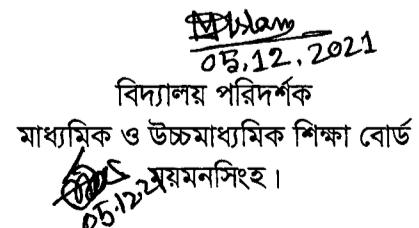 05.12.2021
বিদ্যালয় পরিদর্শক
মাধ্যমিক ও উচ্চমাধ্যমিক শিক্ষা বোর্ড
ময়মনসিংহ।
05.12.21